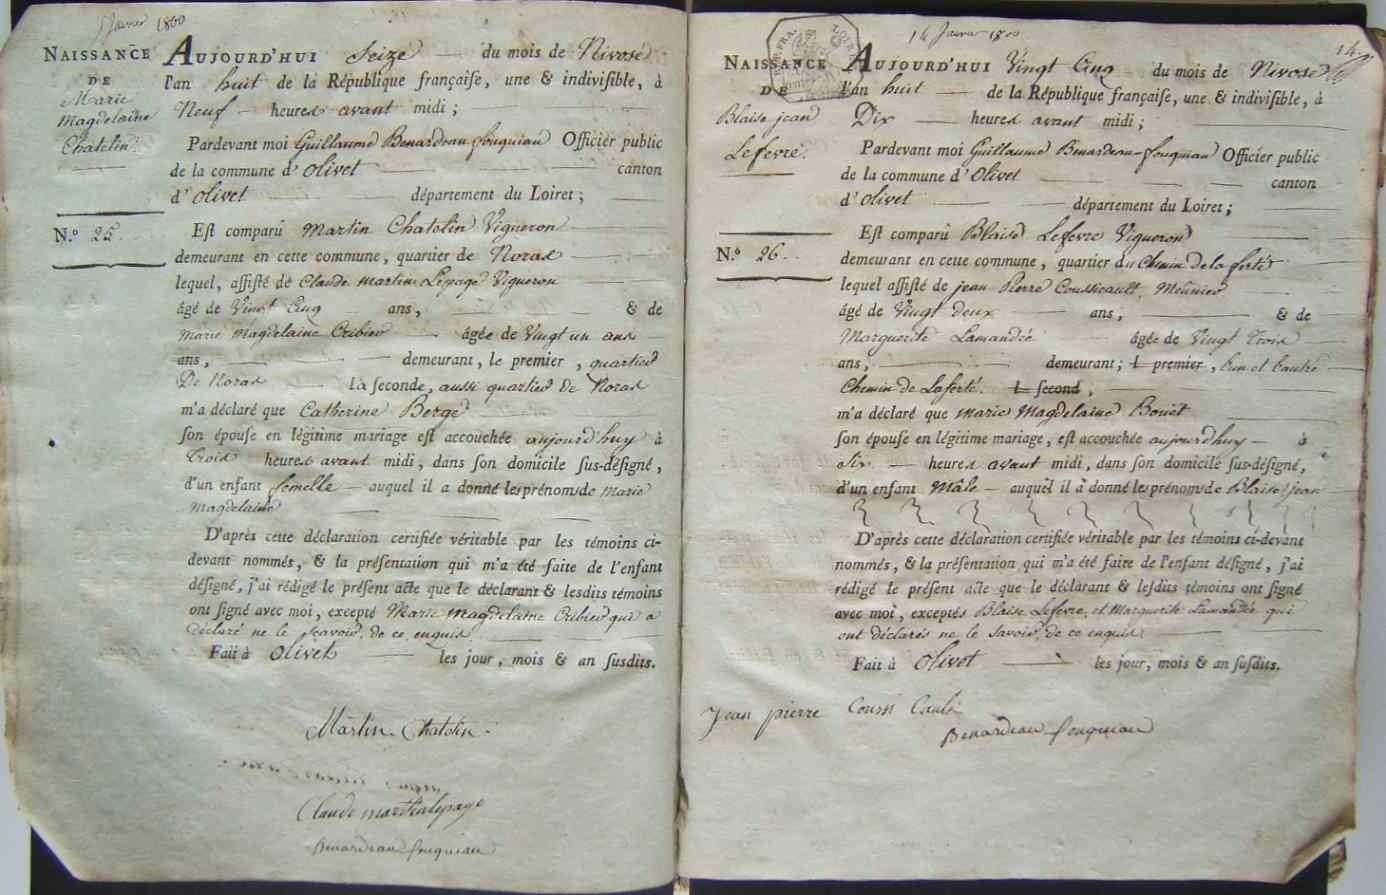 Janvier 1800
NAISSANCE
DE
Marie
Magdelaine
Chatolin
N.º 25.
AUJOURD'HUI Seize du mois de Nivose
l'an huit de la République françaiſe, une & indiviſible, à
Neuf heures avant midi ;
Pardevant moi Guillaume Benardeau fouquiau Officier public
de la commune d'Olivet canton
d'Olivet département du Loiret ;
Eſt comparû Martin Chatolin Vigneron
demeurant en cette commune, quartier de Noras
lequel, aſſiſté de Claude Martin Lepage Vigneron
âgé de Vingt Cinq ans, & de
Marie Magdelaine Cribier âgée de Vingt un ans
ans, demeurant, le premier, quartier
De Noras la ſeconde, aussi quartier de Noras
m'a déclaré que Catherine Berge
ſon épouſe en légitime mariage eſt accouchée aujourd'huy à
Trois heures avant midi, dans ſon domicile ſus-déſigné,
d'un enfant femelle auquel il a donné les prénoms de Marie
Magdelaine
D'après cette déclaration certifiée véritable par les témoins ci-
devant nommés, & la préſentation qui m'a été faite de l'enfant
déſigné, j'ai rédigé le préſent acte que le déclarant & lesdits témoins
ont ſigné avec moi, excepté Marie Magdelaine Cribier qui a
déclaré ne le sçavoir, de ce enquis.
Fait à Olivet les jour, mois & an ſusdits.
Martin Chatolin
Claude martin lepage
Benardeau fouquiau
14 Janvier 1800
NAISSANCE
DE
Blaise jean
Lefevre.
N.º 26.
AUJOURD'HUI Vingt Cinq du mois de Nivose
l'an huit de la République françaiſe, une & indiviſible, à
Dix heures avant midi ;
Pardevant moi Guillaume Benardeau-fouquiau Officier public
de la commune d'Olivet canton
d'Olivet département du Loiret ;
Eſt comparû Blaise Lefevre Vigneron
demeurant en cette commune, quartier du Chemin de la ferté
lequel aſſiſté de jean Pierre Coussicault, Meûnier
âgé de Vingt deux ans, & de
Marguerite Lamandée âgée de Vingt Trois
ans, demeurant ; l premier, l'un et l'autre
Chemin de Laferté. L ſecond,
m'a déclaré que Marie Magdelaine Bouët
ſon épouſe en légitime mariage, eſt accouchée aujourd'huy à
Six heures avant midi, dans ſon domicile ſus-déſigné,
d'un enfant Mâle auquel il a donné les prénoms de Blaise jean
D'après cette déclaration certifiée véritable par les témoins ci-devant
nommés, & la préſentation qui m'a été faite de l'enfant déſigné, j'ai
rédigé le préſent acte que le déclarant & leſdits témoins ont ſigné
avec moi, exceptés Blaise Lefevre, et Marguerite Lamandée qui
ont déclarés ne le Savoir, de ce enquis
Fait à Olivet les jour, mois & an ſuſdits.
Jean pierre Coussi Cault
Benardeau fouquiau